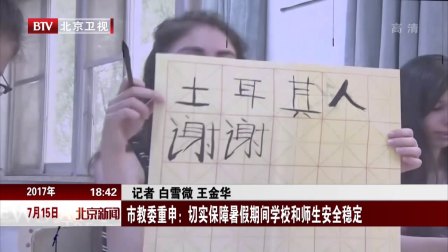 BTV 北京卫视
高清
土耳其人
谢谢
2017年 18:42 记者 白雪微 王金华
7月15日 北京新闻 市教委重申：切实保障暑假期间学校和师生安全稳定